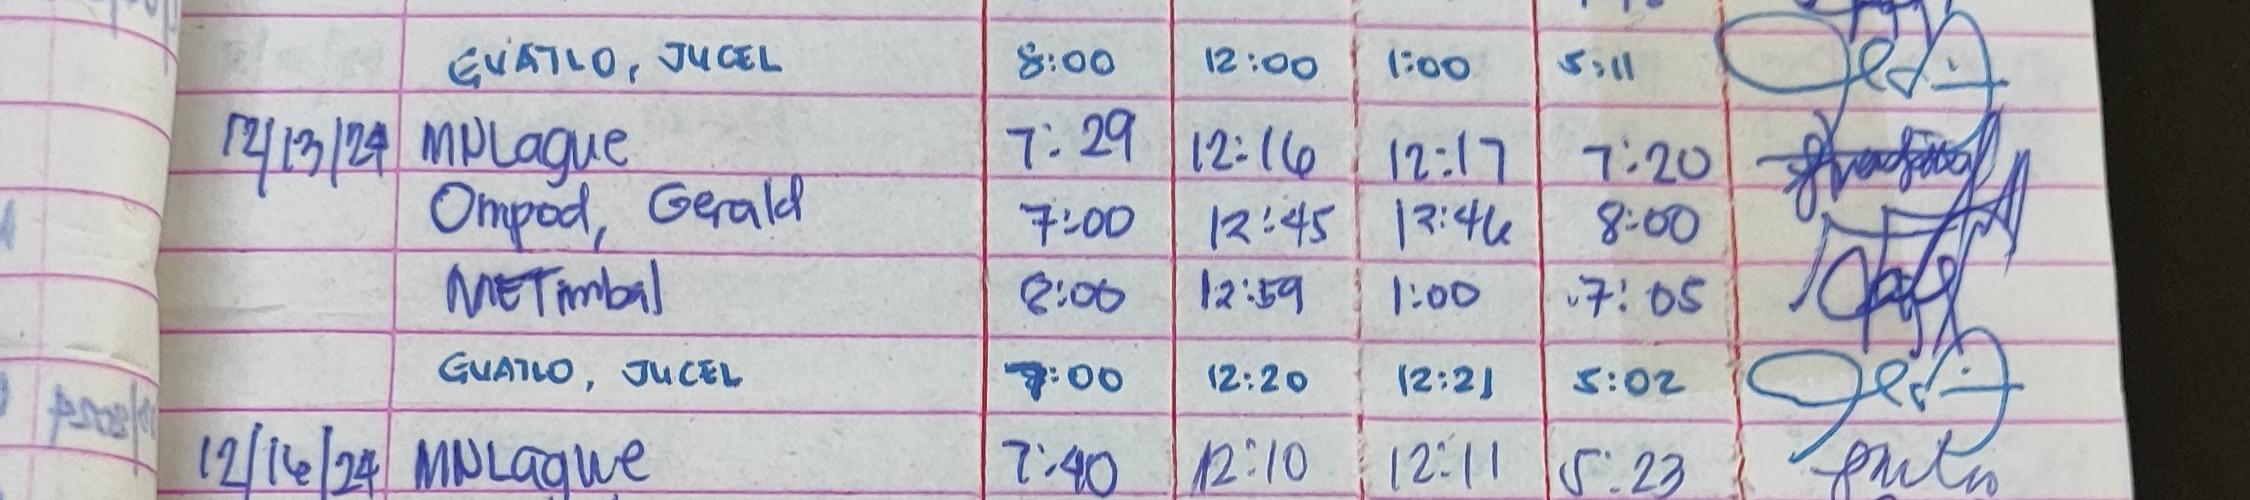 GUATLO, JUCEL 8:00 12:00 1:00 5:11
12/13/24 MNLague 7:29 12:16 12:17 7:20
Ompod, Gerald 7:00 12:45 12:46 8:00
METimbal 8:00 12:59 1:00 7:05
GUATLO, JUCEL 7:00 12:20 12:21 5:02
12/16/24 MNLague 7:40 12:10 12:11 5:23